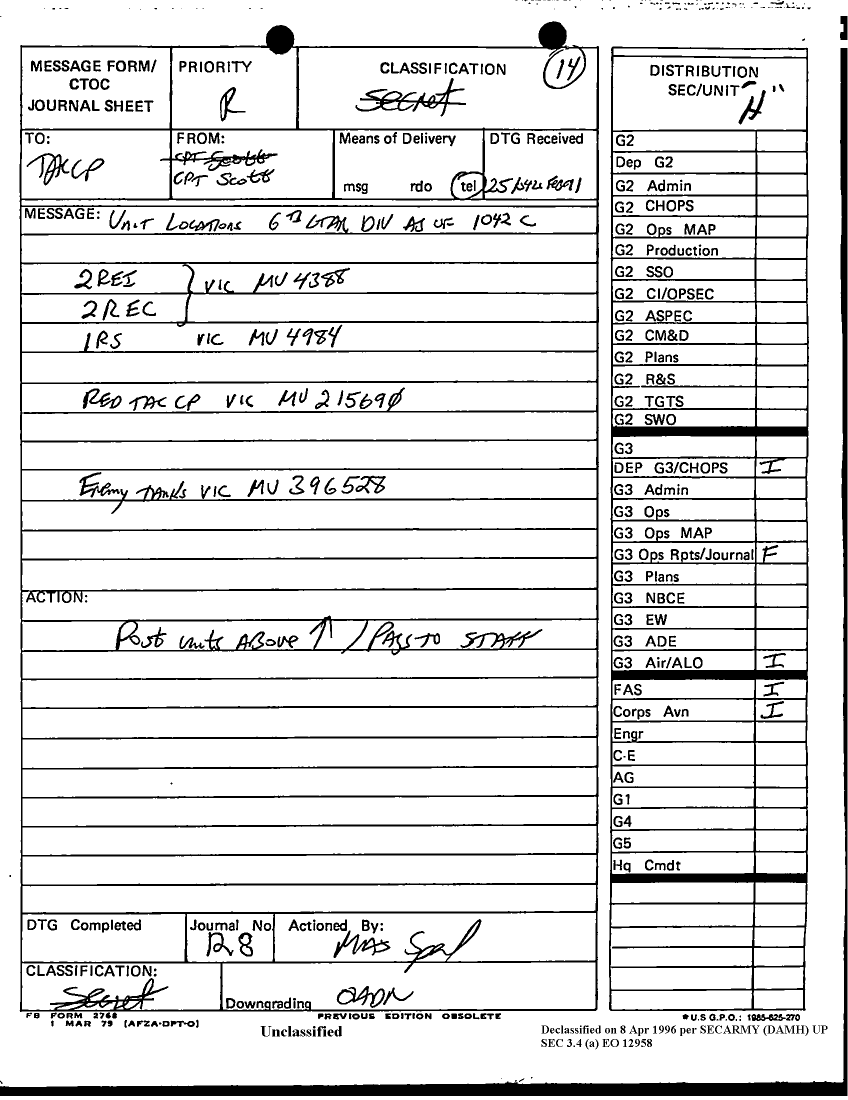 MESSAGE FORM/
CTOC
JOURNAL SHEET
PRIORITY
R
CLASSIFICATION
Secret
14
TO:
TACCP
FROM:
CPT Scott
CPT Scott
Means of Delivery
msg rdo tel
DTG Received
MESSAGE: UNIT LOCATIONS 6TH DIV AS OF 1042 C
2REI
VIC MU 4388
2REC
1RS VIC MU 4984
RED TAC CP VIC MU 215690
Enemy tanks VIC MU 396528
ACTION:
Post units ABOVE ↑ / PASS TO STAFF
DTG Completed
Journal No
Actioned By:
CLASSIFICATION:
Secret
Downgrading OADR
FB FORM 2768
1 MAR 79 (AFZA-DPT-O)
PREVIOUS EDITION OBSOLETE
Unclassified
DISTRIBUTION
SEC/UNIT
"H"
G2
Dep G2
G2 Admin
G2 CHOPS
G2 Ops MAP
G2 Production
G2 SSO
G2 CI/OPSEC
G2 ASPEC
G2 CM&D
G2 Plans
G2 R&S
G2 TGTS
G2 SWO
G3
DEP G3/CHOPS I
G3 Admin
G3 Ops
G3 Ops MAP
G3 Ops Rpts/Journal F
G3 Plans
G3 NBCE
G3 EW
G3 ADE
G3 Air/ALO I
FAS I
Corps Avn I
Engr
C-E
AG
G1
G4
G5
Hq Cmdt
*U.S G.P.O.: 1985-625-270
Declassified on 8 Apr 1996 per SECARMY (DAMH) UP
SEC 3.4 (a) EO 12958